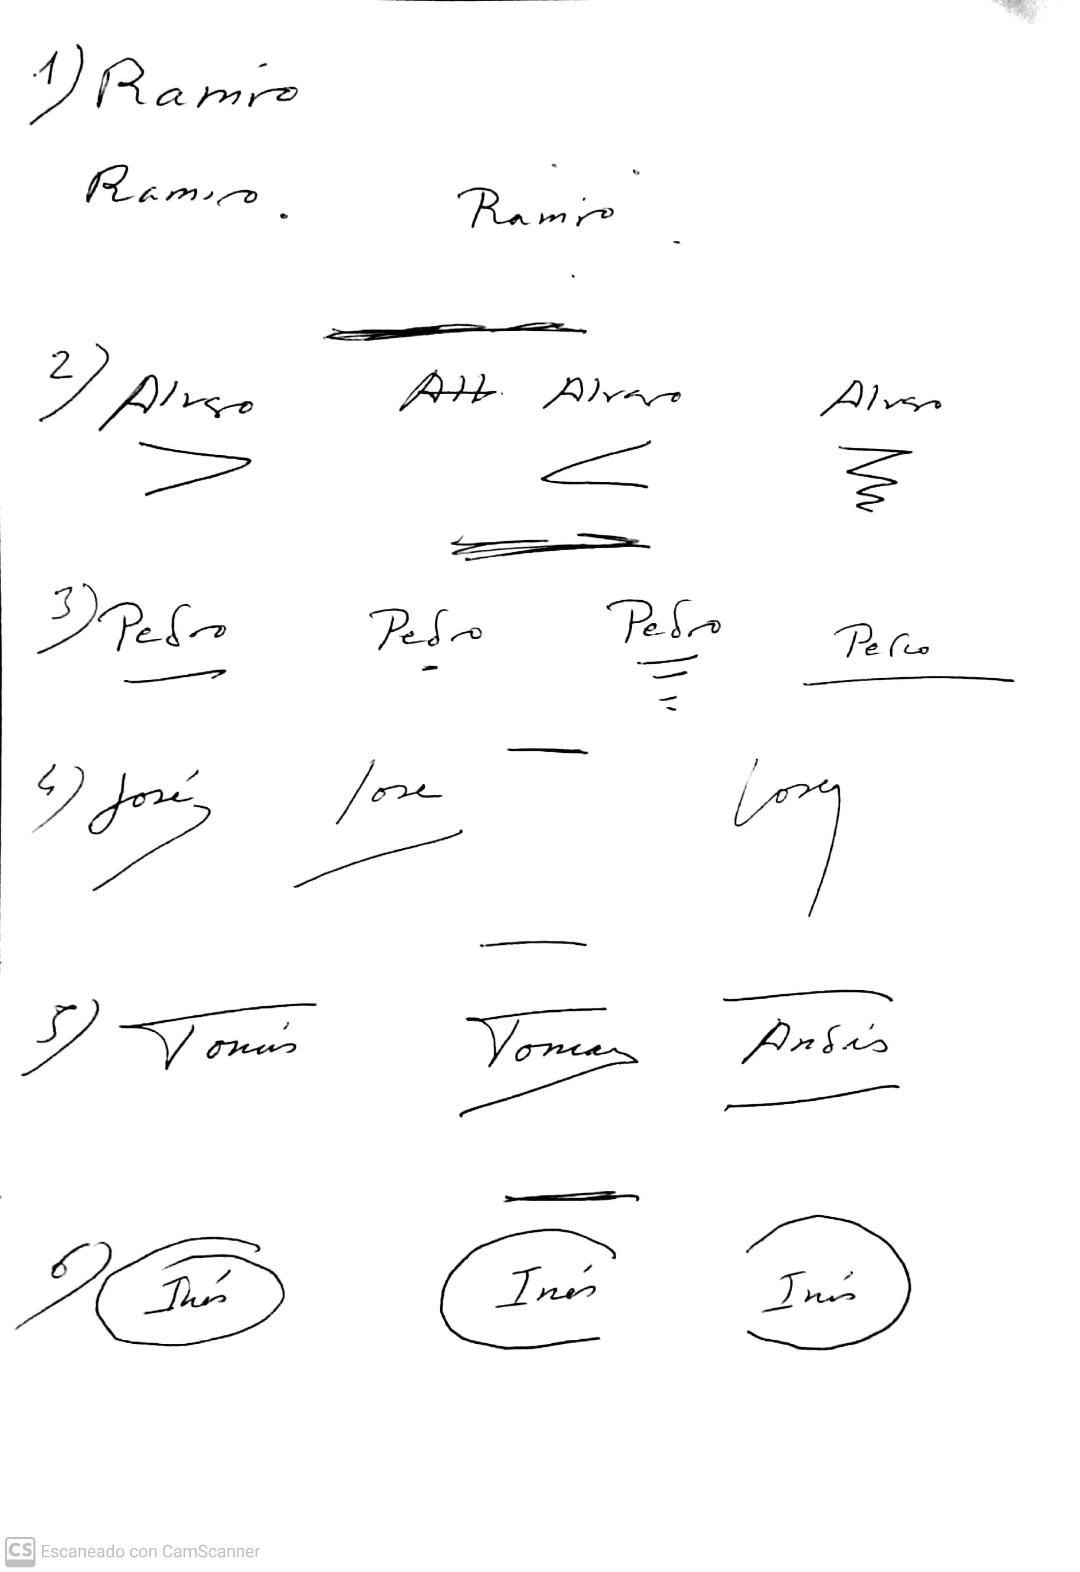 1) Ramiro
Ramiro. Ramiro
2) Alvaro Alt. Alvaro Alvaro
3) Pedro Pedro Pedro Pedro
4) José Jose Jose
5) Tomás Tomas Andrés
6) Inés Inés Inés
CS Escaneado con CamScanner